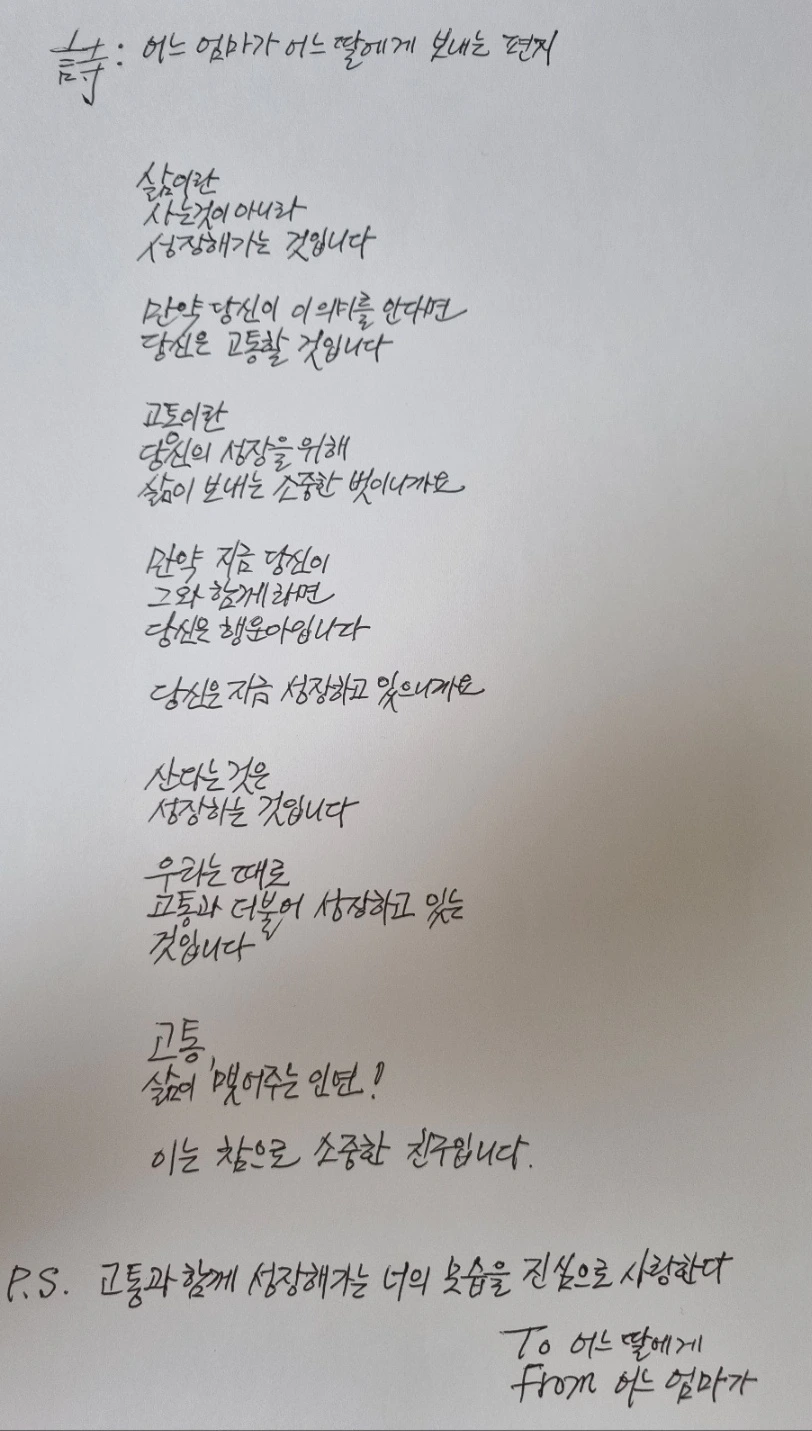 詩: 어느 엄마가 어느 딸에게 보내는 편지
삶이란
사는것이 아니라
성장해가는 것입니다
만약 당신이 이 의미를 안다면
당신은 고통할 것입니다
고통이란
당신의 성장을 위해
삶이 보내는 소중한 벗이니까요
만약 지금 당신이
그와 함께라면
당신은 행운아입니다
당신은 지금 성장하고 있으니까요
산다는 것은
성장하는 것입니다
우리는 때로
고통과 더불어 성장하고 있는
것입니다
고통,
삶이 맺어주는 인연!
이는 참으로 소중한 친구입니다.
P.S. 고통과 함께 성장해가는 너의 모습을 진심으로 사랑한다
To 어느 딸에게
From 어느 엄마가